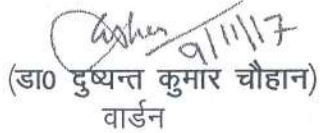 9/11/17
(डा0 दुष्यन्त कुमार चौहान)
वार्डन